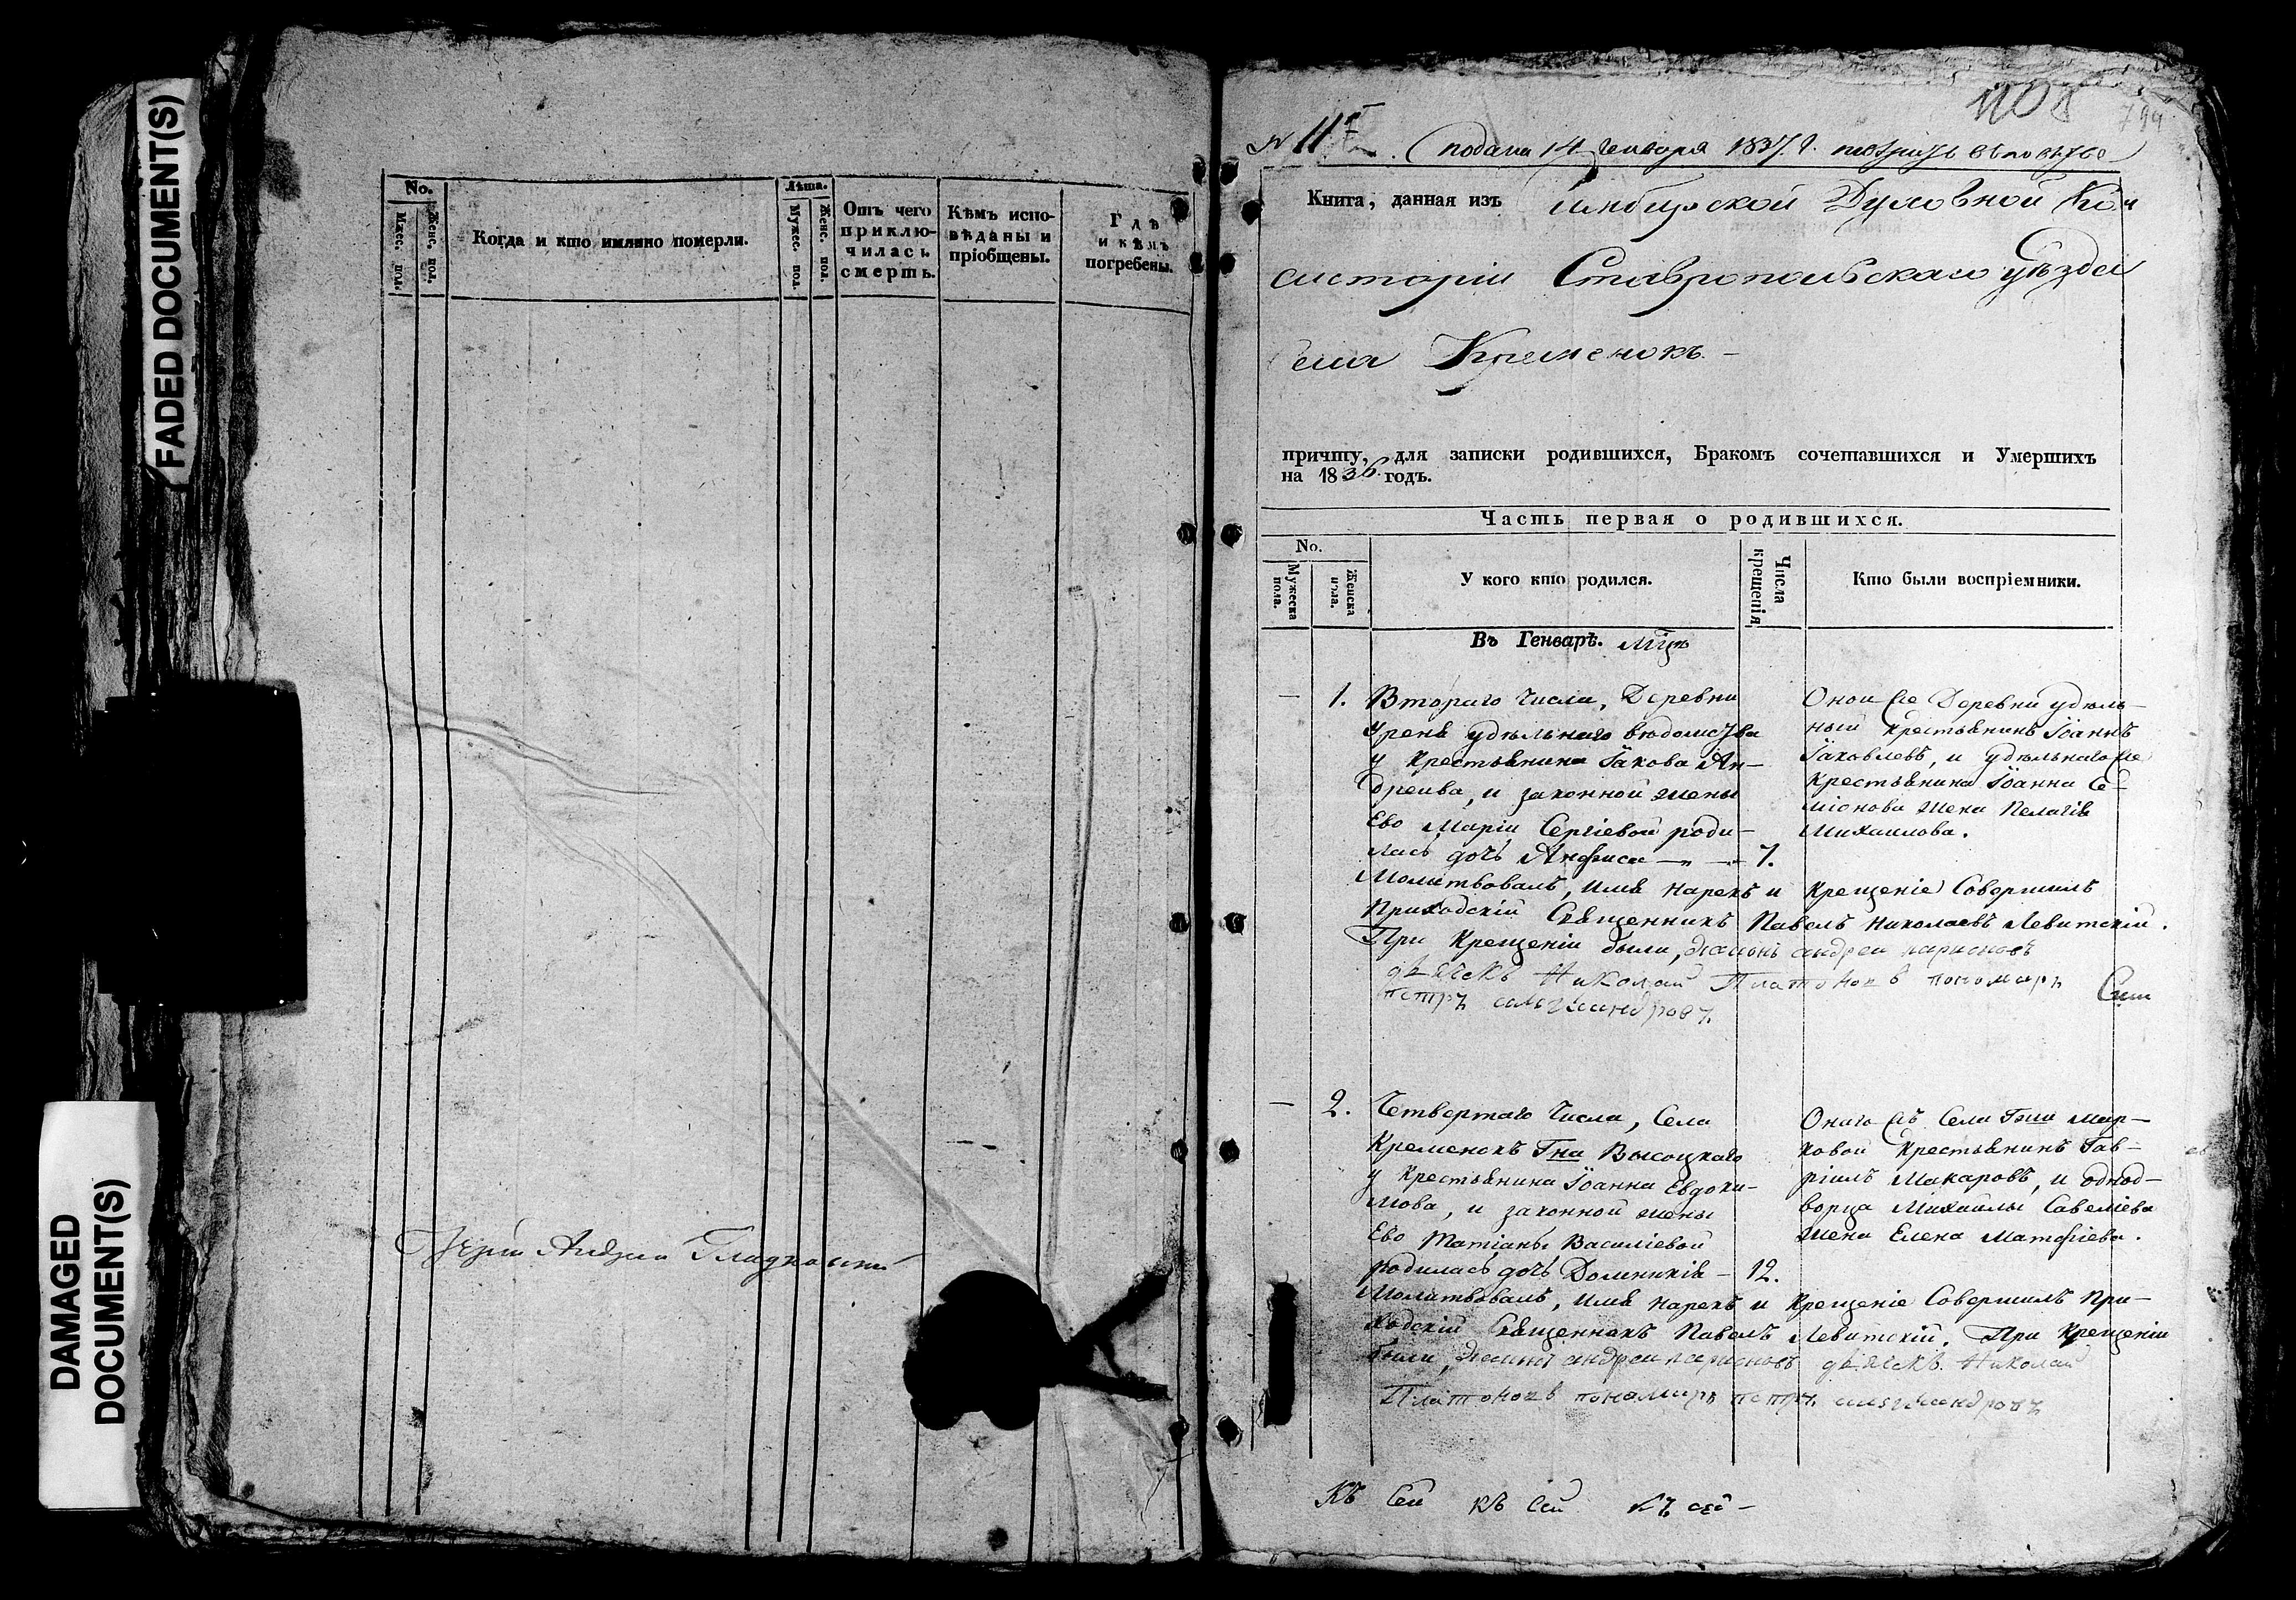 FADED DOCUMENT(S)
DAMAGED
DOCUMENT(S)
No.
Мужес. пол.
Женс. пол.
Когда и кто имянно померли.
Лѣта.
Мужес. пол.
Женс. пол.
Отъ чего
приклю-
чилась
смерть.
Кѣмъ испо-
вѣданы и
пріобщены.
Гдѣ
и кѣмъ
погребены.
Андрей
1108
794
N 11
подана 14 Генваря 1837. г.
Книга, данная изъ Симбирской Духовной Кон
систоріи Ставропольскаго уѣзда
села Кременокъ. –
причту, для записки родившихся, Бракомъ сочетавшихся и Умершихъ
на 1836 годъ.
Часть первая о родившихся.
No.
Мужеска пола.
Женска пола.
У кого кто родился.
Числа крещенія
Кто были воспріемники.
Въ Генварѣ. мцѣ
– 1. Втораго числа, Деревни
Уреня удѣльнаго вѣдомства
у крестьянина Іакова Ан-
дреива, и законной жены
Ево Маріи Сергіевой роди-
лась дочь Анфиса – „ – 7.
Оной же Деревни удѣль-
ный крестьянинъ Іоаннъ
Іаковлевъ, и удѣльнаго же
крестьянина Іоанна Се-
міонова жена Пелагія
Михаилова.
Молитвовалъ, имя нарекъ и крещеніе Совершилъ
Приходскій Священникъ Павелъ Николаевъ Левитскій.
При крещеніи были, діаконъ андреи ларионовъ
дьячекъ Николай Платоновъ пономарь Сии
петръ александровъ
– 2. Четвертаго числа, Села
Кременокъ Гна Высоцкаго
у крестьянина Іоанна Евдоки-
мова, и законной жены
Ево Татіаны Василіевой
родилась дочь Домникія – 12.
Онаго жъ Села Гжи Мар-
ковой крестьянинъ Гав-
ріилъ Макаровъ, и однод-
ворца Михайлы Савеліева
жена Елена Матфіева.
Молитвовалъ, имя нарекъ и крещеніе Совершилъ При-
ходскій Священникъ Павелъ Левитскій. При крещеніи
были, діаконъ андреи ларионовъ дьячекъ Николай
Платоновъ пономарь петръ александровъ
Къ сей къ сей къ сей –